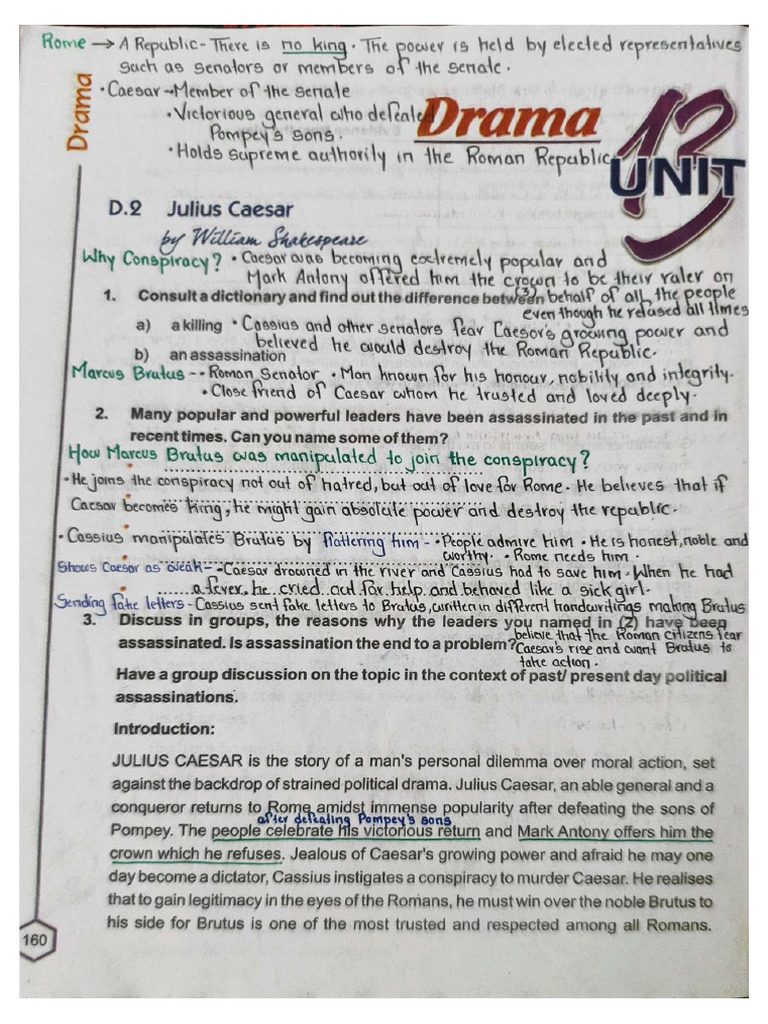 Rome → A Republic - There is no king. The power is held by elected representatives
such as senators or members of the senate.
• Caesar → Member of the senate
• Victorious general who defeated
Pompey's sons.
• Holds supreme authority in the Roman Republic
Drama
Drama
13
UNIT
D.2 Julius Caesar
by William Shakespeare
Why Conspiracy? • Caesar was becoming extremely popular and
Mark Antony offered him the crown to be their ruler on
1. Consult a dictionary and find out the difference between behalf of all the people
(3)
even though he refused all times
a) a killing • Cassius and other senators fear Caesar's growing power and
believed he would destroy the Roman Republic.
b) an assassination
Marcus Brutus -- • Roman Senator • Man known for his honour, nobility and integrity.
• Close friend of Caesar whom he trusted and loved deeply.
2. Many popular and powerful leaders have been assassinated in the past and in
recent times. Can you name some of them?
How Marcus Brutus was manipulated to join the conspiracy?
• He joins the conspiracy not out of hatred, but out of love for Rome. He believes that if
Caesar becomes king, he might gain absolute power and destroy the republic.
• Cassius manipulates Brutus by flattering him - • People admire him • He is honest, noble and
worthy. • Rome needs him.
Shows Caesar as weak - - Caesar drowned in the river and Cassius had to save him. When he had
a fever, he cried out for help and behaved like a sick girl.
Sending fake letters - Cassius sent fake letters to Brutus, written in different handwritings making Brutus
3. Discuss in groups, the reasons why the leaders you named in (2) have been
assassinated. Is assassination the end to a problem?
believe that the Roman citizens fear
Caesar's rise and want Brutus to
take action.
Have a group discussion on the topic in the context of past/ present day political
assassinations.
Introduction:
JULIUS CAESAR is the story of a man's personal dilemma over moral action, set
against the backdrop of strained political drama. Julius Caesar, an able general and a
conqueror returns to Rome amidst immense popularity after defeating the sons of
after defeating Pompey's sons
Pompey. The people celebrate his victorious return and Mark Antony offers him the
crown which he refuses. Jealous of Caesar's growing power and afraid he may one
day become a dictator, Cassius instigates a conspiracy to murder Caesar. He realises
that to gain legitimacy in the eyes of the Romans, he must win over the noble Brutus to
his side for Brutus is one of the most trusted and respected among all Romans.
160